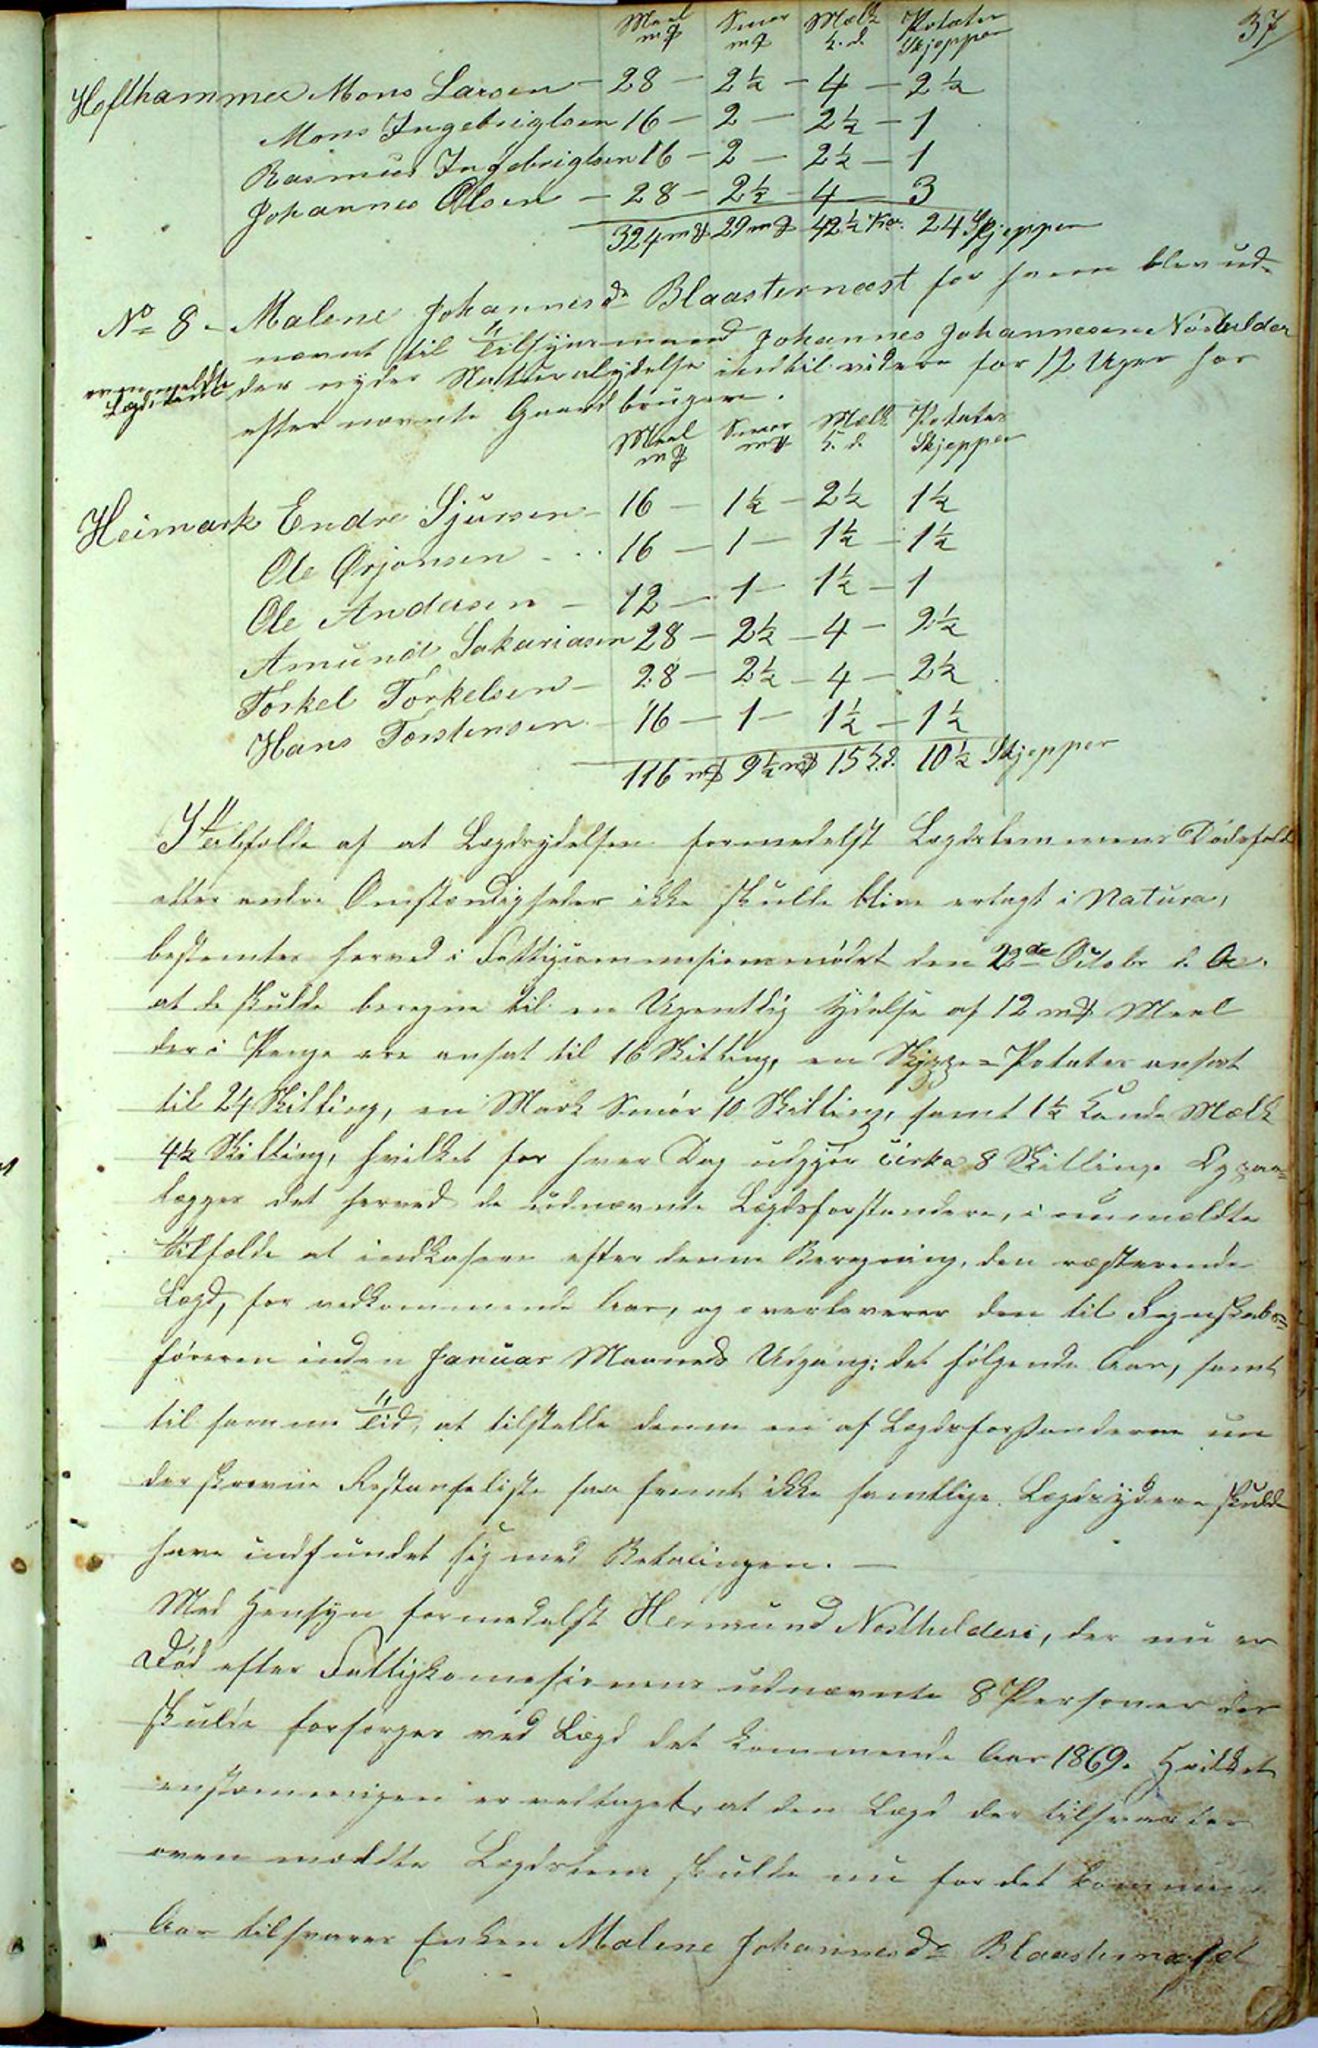 37
Meel Smør Mælk Potater
m℔ m℔ K. d. Skjepper
Hefthammer Mons Larsen – 28 – 2½ – 4 – 2½
Mons Ingebrigtsen 16 – 2 – 2½ – 1
Rasmus Ingebrigtsen 16 – 2 – 2½ – 1
Johannes Olsen – 28 – 2½ – 4 – 3
324 m℔ 29 m℔ 42½ Kr. 24 Skjepper
No 8 – Malene Johannesdr Blaasternæst for hvem blev ud-
nævnt til Tilsynsmand Johannes Johannesen Nöstelder
der nyder Naturalydelse indtil videre for 12 Uger hos
Lægdslem
efternævnte Gaardbrugere.
Meel Smør Mælk Potater
m℔ m℔ K. d. Skjepper
Heimark Endre Sjursen – 16 – 1½ – 2½ 1½
Ole Ørjansen – 16 – 1 – 1½ – 1½
Ole Andersen – 12 – 1 – 1½ – 1
Amund Sakariasen 28 – 2½ – 4 – 2½
Torkel Torkelsen – 28 – 2½ – 4 – 2½
Hans Torstensen – 16 – 1 – 1½ – 1½
116 m℔ 9½ m℔ 15 K.d. 10½ Skjepper
I Tilfælde af at Lægdsydelsen formedelst Lægdslemmens Dødsfald
eller andre Omstændigheder ikke skulde blive erlagt i Natura,
bestemtes herved i Fattigcommisionsmødet den 22de Octobr d. A.
at de skulde beregne til en Ugentlig Ydelse af 12 m℔ Meel
der i Penge ere ansat til 16 Skilling, en Skjeppe Potater ansat
til 24 Skilling, en Mark Smør 10 Skilling, samt 1½ Kande Mælk
4½ Skilling, hvilket for hver Dag udgjør cirka 8 Skilling. Og paa-
lægges det herved de udnævnte Lægdsforstandere, i anmeldte
Tilfælde at indkasere efter denne Beregning, den resterende
Lægd, for vedkommende Aar, og overleverer den til Regnskabs-
føreren inden Januar Maaneds Udgang det følgende Aar, samt
til samme Tid, at tilstelle denne en af Lægdsforstanderne un
derskreven Restanseliste saa fremt ikke samtlige Lægdsydere skulde
have indfundet sig med Betalingen. –
Med Hensyn formedelst Hermund Nöstheldere, der nu er
Død efter Fattigkomesionens udnævnte 8 Personer der
skulde forsørges ved Lægd det kommende Aar 1869. Hvilket
enstemmigen er vedtaget, at den Lægd der tilsvarede
ovenmeldte Lægdslem skulde nu for det kommende
Aar tilsvarer Enken Malene Johannesdr Blaasternæset